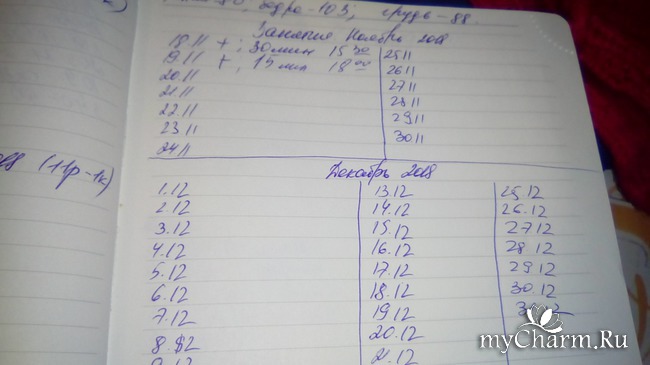 бедра-103; грудь-88.
Занятия Ноябрь 2018
18.11 + ; 30 мин 15 30 25.11
19.11 + ; 15 мин 18 00 26.11
20.11 27.11
21.11 28.11
22.11 29.11
23.11 30.11
24.11
(1кр-1к)
Декабрь 2018
1.12 13.12 25.12
2.12 14.12 26.12
3.12 15.12 27.12
4.12 16.12 28.12
5.12 17.12 29.12
6.12 18.12 30.12
7.12 19.12
8.12 20.12
9.12 21.12
myCharm.Ru